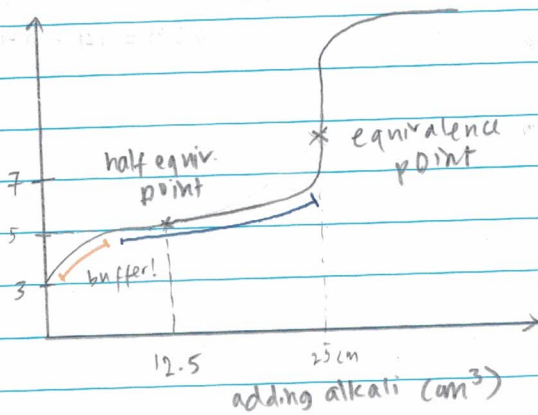 half equiv.
point
equivalence
point
7
5
3
buffer!
12.5
25cm
adding alkali (cm³)